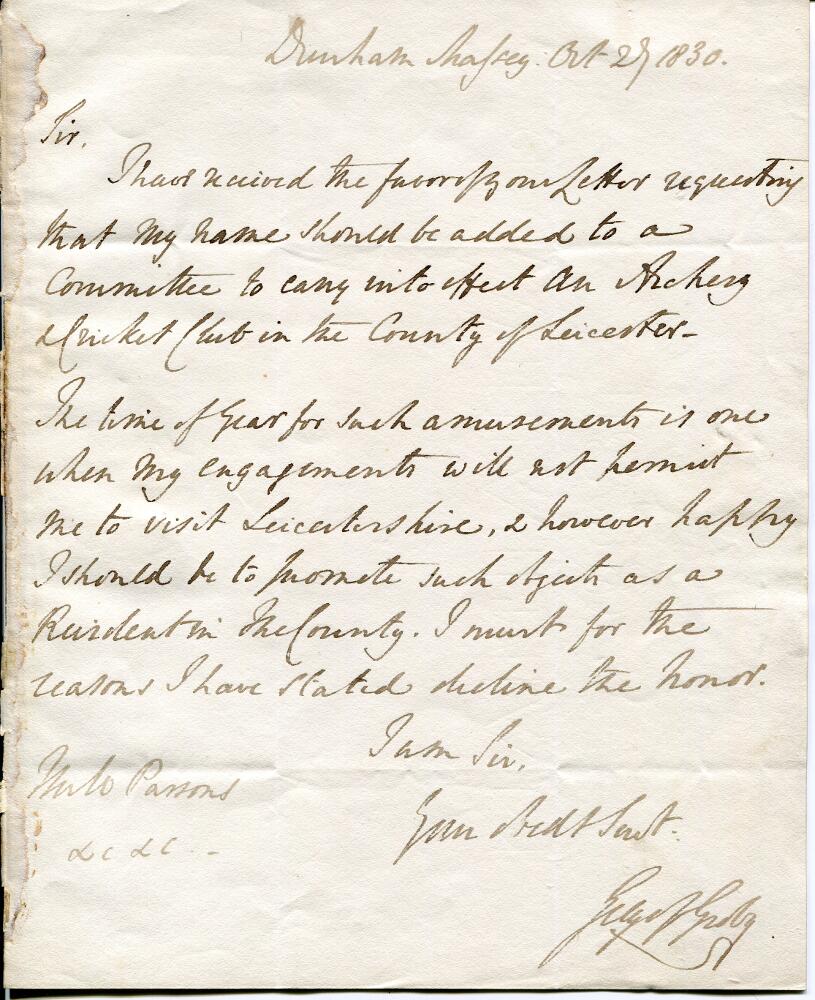 Dunham Massey. Oct 27 1830.
Sir,
I have received the favor of your Letter requesting
that my name should be added to a
Committee to carry into effect an Archery
& Cricket Club in the County of Leicester -
The time of Year for such amusements is one
when my engagements will not permit
me to visit Leicestershire, & however happy
I should be to promote such objects as a
Resident in the County. I must for the
reasons I have stated decline the honor.
I am Sir,
Your Obedt Servt.
Parsons
&c &c - -
Grey of Groby